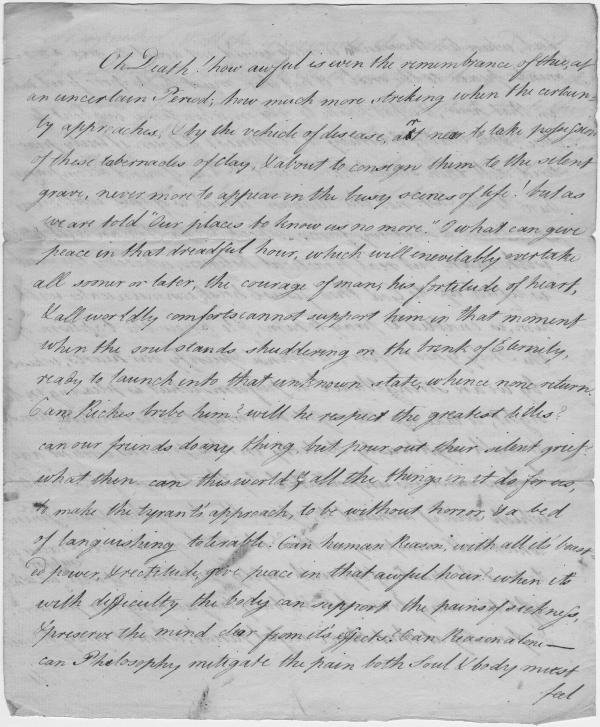 Oh Death! how awful is even the remembrance of thee, at
an uncertain Period; how much more striking when the certain-
ty approaches, & by the vehicle of disease, art near to take possession
of these tabernacles of Clay, & about to consign them to the silent
grave, never more to appear in the busy scenes of life! but as
we are told "Our places to know us no more." O what can give
peace in that dreadful hour, which will inevitably overtake
all sooner or later, the courage of man, his fortitude of heart,
& all worldly comforts cannot support him in that moment
when the soul stands shuddering on the brink of Eternity,
ready to launch into that unknown state, whence none return.
Can Riches bribe him? will he respect the greatest titles?
can our friends do any thing but pour out their silent grief
what then can this world & all the things in it do for us,
to make the tyrant's approach, to be without horror, & a bed
of languishing tolerable. Can human Reason, with all its boast-
ed power, & rectitude, give peace in that awful hour? when its
with difficulty the body can support the pains of sickness,
& preserve the mind clear from it's effects. Can Reason alone—
can Philosophy mitigate the pain both Soul & body must
feel